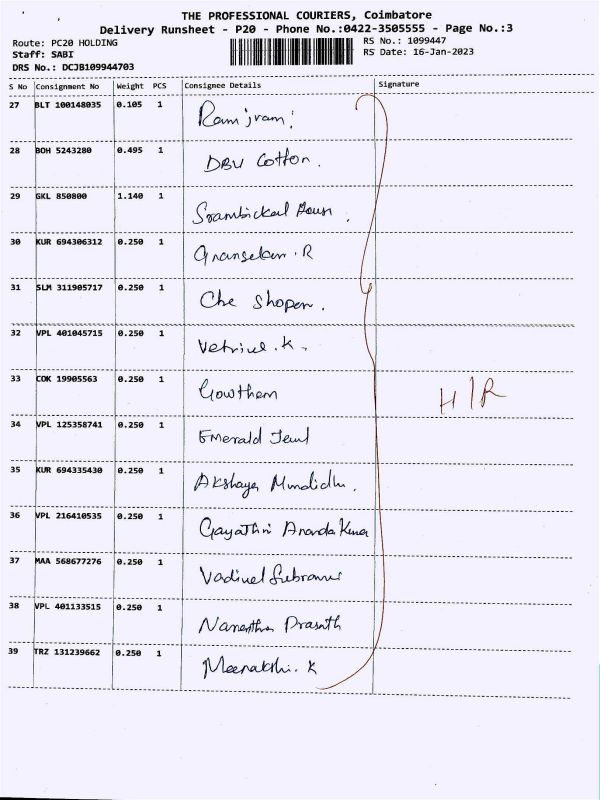 THE PROFESSIONAL COURIERS, Coimbatore
Delivery Runsheet - P20 - Phone No.:0422-3505555 - Page No.:3
Route: PC20 HOLDING
Staff: SABI
DRS No.: DCJB109944703
RS No.: 1099447
RS Date: 16-Jan-2023
S No Consignment No Weight PCS Consignee Details Signature
27 BLT 100148035 0.105 1 Ramjram
28 BOH 5243280 0.495 1 DBU Cotton.
29 GKL 850800 1.140 1
30 KUR 694306312 0.250 1 R
31 SLM 311905717 0.250 1 Che Shopen.
32 VPL 401045715 0.250 1 Vetrivel.K.
33 COK 19905563 0.250 1 Gowthem
H/R
34 VPL 125358741 0.250 1 Emerald Jewl
35 KUR 694335430 0.250 1 Akshaya
36 VPL 216410535 0.250 1 Gayathri Ananda Kumar
37 MAA 568677276 0.250 1 Vadivel
38 VPL 401133515 0.250 1 Prasath
39 TRZ 131239662 0.250 1 Meenakshi. K